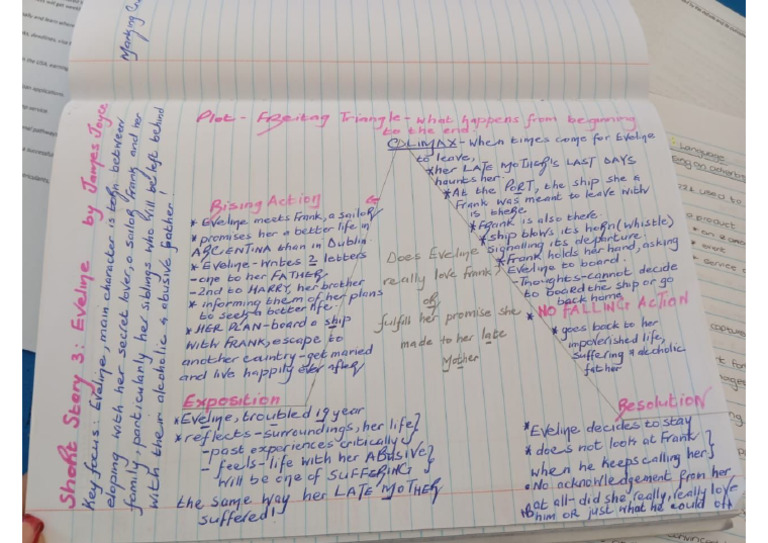 Marking
Short Story 3: Eveline by James Joyce
Key focus: Eveline, main character is torn between
eloping with her secret lover, a sailor Frank and her
family, particularly her siblings who will be left behind
with their alcoholic & abusive father!
Plot - FREitag Triangle - what happens from beginning
to the end.
COLIMAX - When times come for Eveline
to leave,
*her LATE MOTHER'S LAST DAYS
haunts her.
*At the PORT, the ship she &
Frank was meant to leave with
is there
*Frank is also there.
*Ship blows its horn (whistle)
signalling its departure.
*Frank holds her hand, asking
Eveline to board.
-Thoughts - cannot decide
to board the ship or go
back home.
* NO FALLING ACTION
* goes back to her
impoverished life,
suffering & alcoholic
father
Rising Action
* Eveline meets Frank, a sailor
* promises her a better life in
ARGENTINA than in Dublin.
* Eveline - writes 2 letters
-one to her FATHER
-2nd to HARRY, her brother
* informing them of her plans
to seek a better life.
* HER PLAN - board a ship
with FRANK, escape to
another country - get maried
and live happily ever after
Does Eveline
really love Frank
OR
fulfill her promise she
made to her late
Mother
Exposition
*Eveline, troubled 19 year
* reflects - surroundings, her life
-past experiences critically
- feels - life with her ABUSIVE
will be one of SUFFERING
the same way her LATE MOTHER
suffered!
Resolution
*Eveline decides to stay
* does not look at Frank
when he keeps calling her
• No acknowledgement from her
at all - did she really, really love
him or just what he could off
Language
used to
product
service